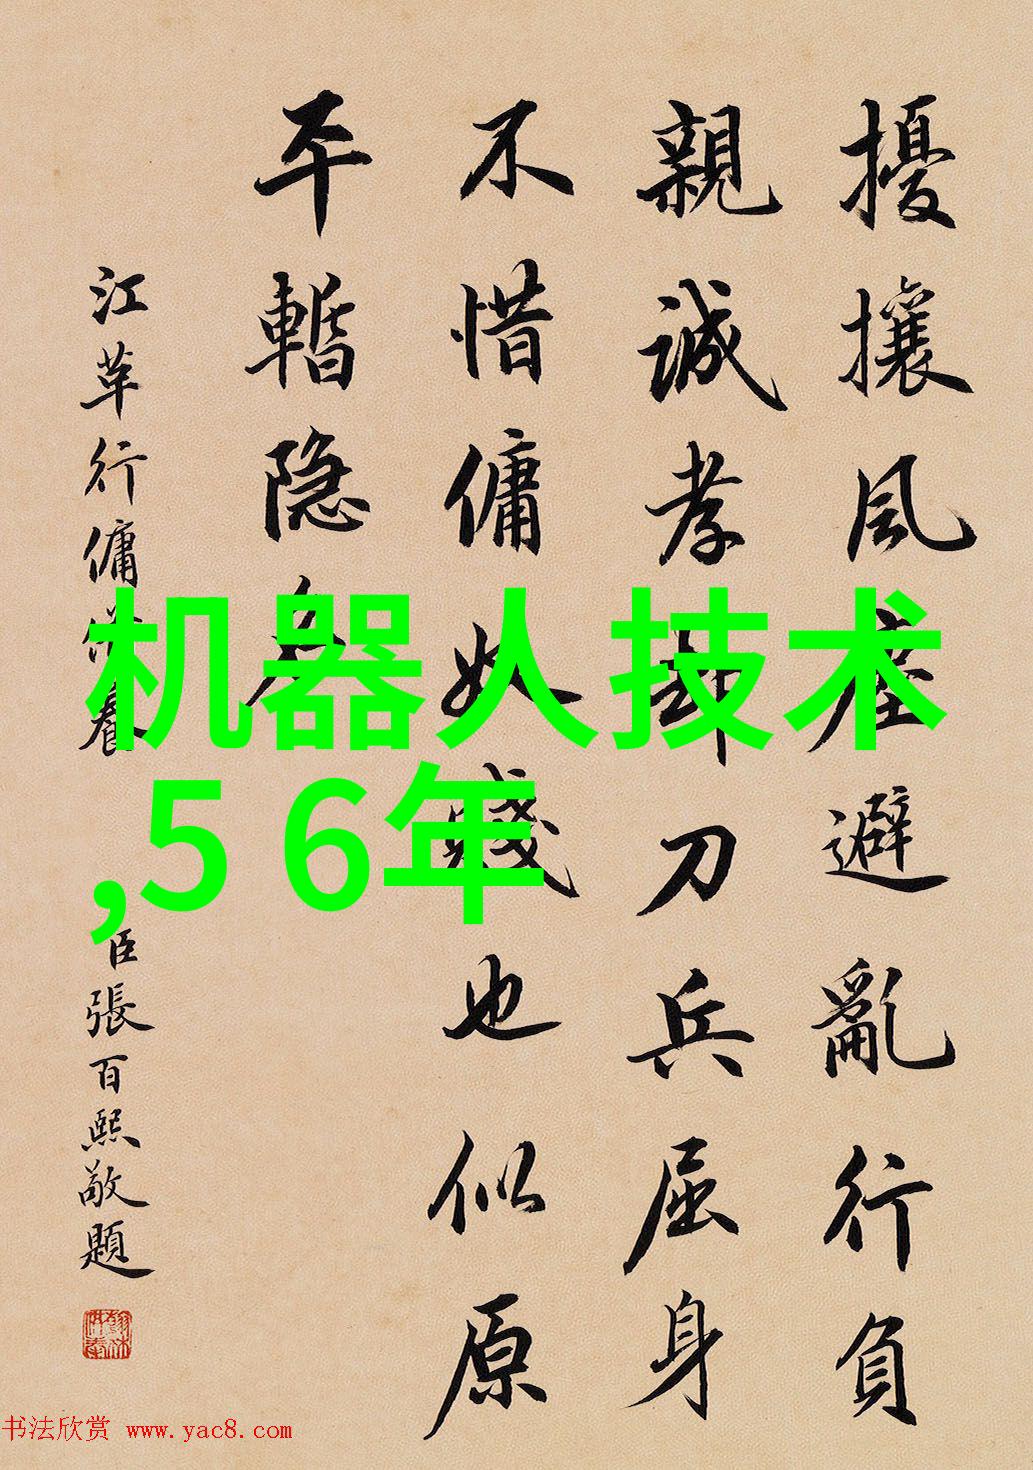 擾攘風塵避亂行負
親誠孝却刀兵屈身
不惜傭奴賤也似原
平暫隐名
江革行傭供養
臣張百熙敬題
机器人技术
,56年
书法欣赏 www.yac8.com